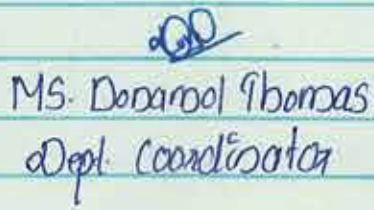 MS. Donamol Thomas
Dept. Coordinator